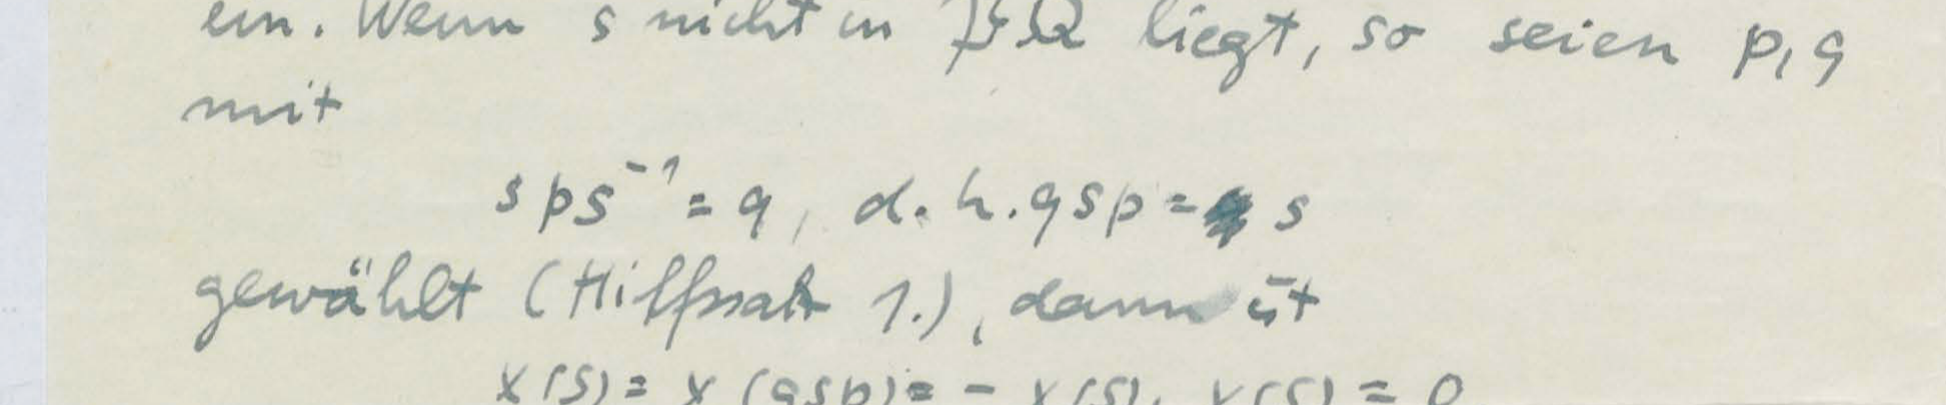 ein. Wenn s nicht in PQ liegt, so seien p, q
mit
sps⁻¹ = q, d.h. qsp = s
gewählt (Hilfssatz 1.), dann ist
χ(s) = χ(qsp) = - χ(s), χ(s) = 0